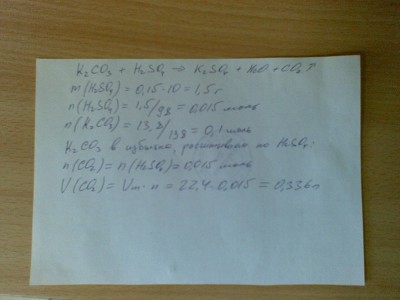 K₂CO₃ + H₂SO₄ → K₂SO₄ + H₂O + CO₂↑
m(H₂SO₄) = 0,15·10 = 1,5 г
n(H₂SO₄) = 1,5/98 = 0,015 моль
n(K₂CO₃) = 13,8/138 = 0,1 моль
K₂CO₃ в избытке, по H₂SO₄:
n(CO₂) = n(H₂SO₄) = 0,015 моль
V(CO₂) = Vm·n = 22,4·0,015 = 0,336 л